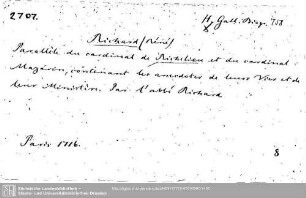 2707.
H. Gall. Biogr. 758
Richard (Réné)
Parallèle du cardinal de Richelieu et du cardinal
Mazarin, contenant les anecdotes de leurs Vies et de
leur Ministère. Par l'abbé Richard
Paris 1716.
8